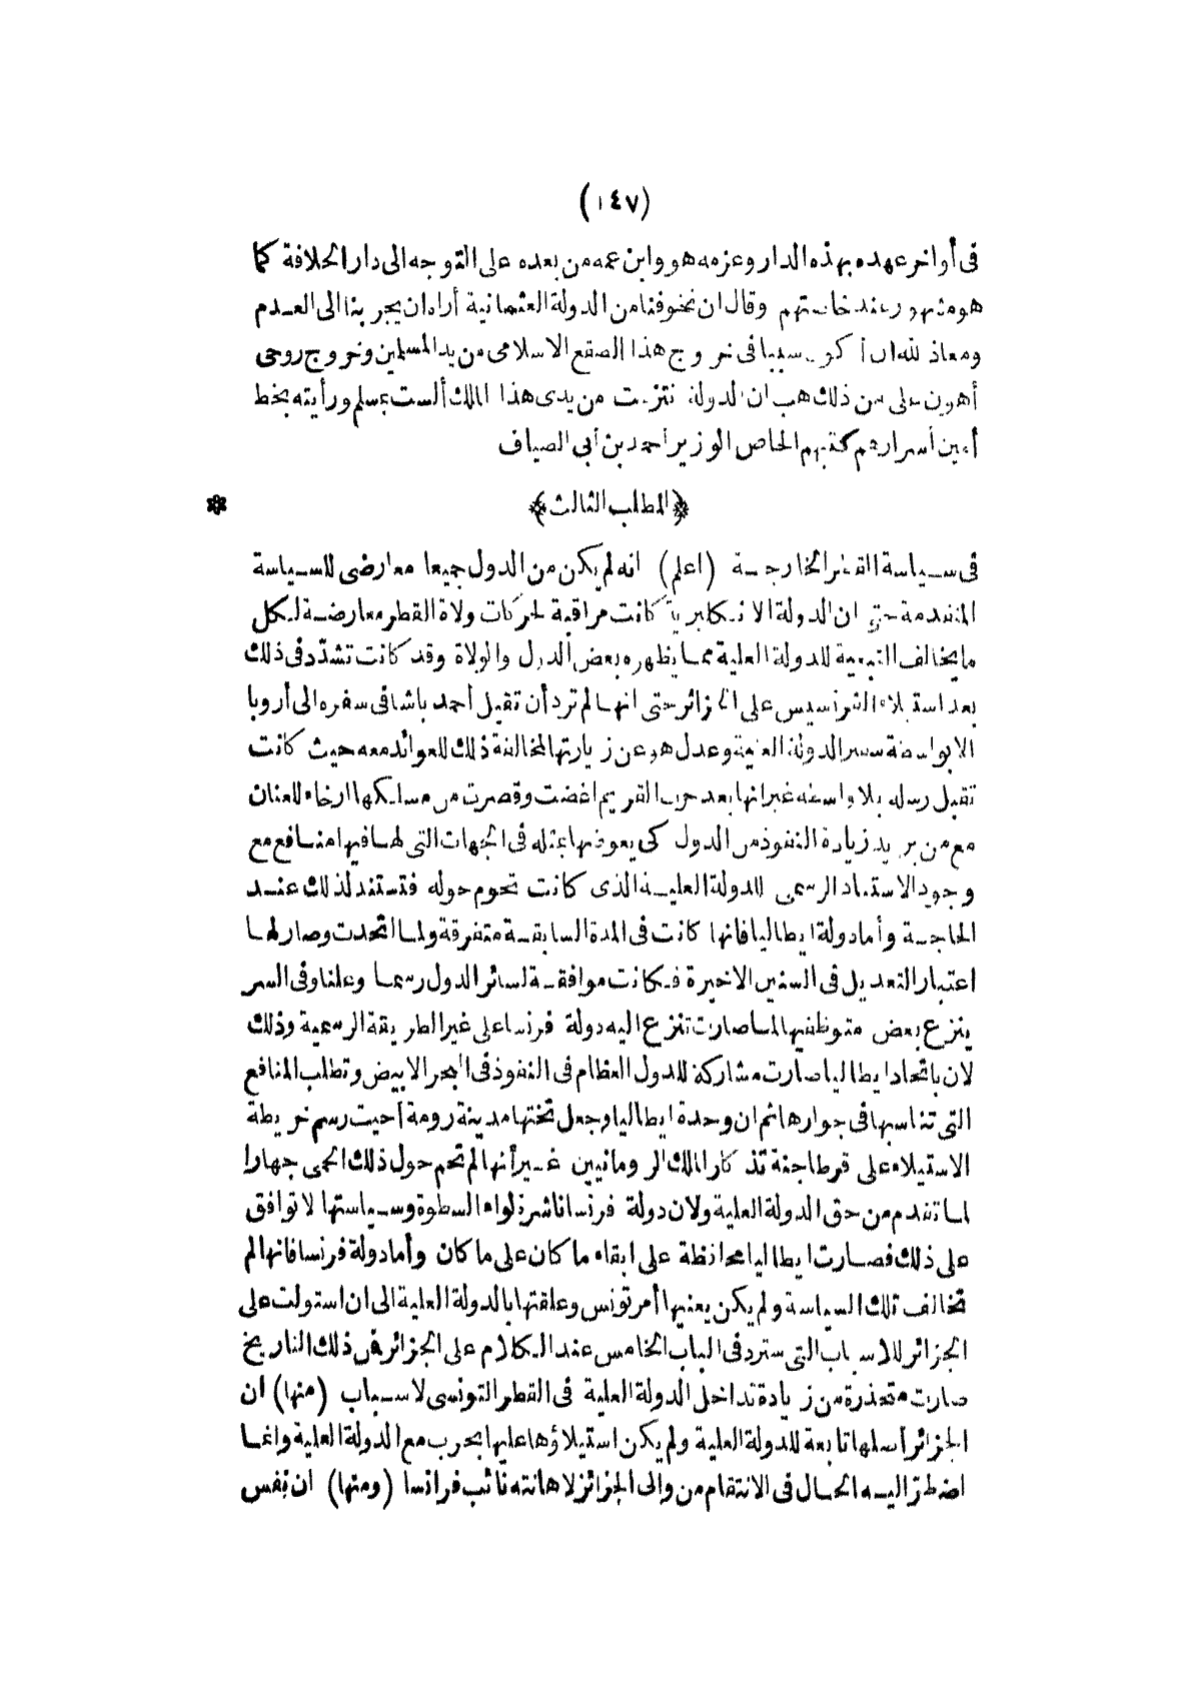 (١٤٧)
فى أواخر عهده بهذه الدار وعزمه هو وابن عمه من بعده على التوجه الى دار الخلافة كما
هو مشهور عند خاصتهم وقال ان تخوفنا من الدولة العثمانية أراه ان يجر بنا الى العدم
ومعاذ الله ان أكون سببا فى خروج هذا الصقع الاسلامى من يد المسلمين وخروج روحى
أهون على من ذلك هب ان الدولة نتزعت من يدى هذا الملك ألست بمسلم ورأيته بخط
أمين أسرارهم كتبهم الخاص الوزير أحمد بن أبى الضياف
﴿المطلب الثالث﴾ *
فى سياسة القطر الخارجية (اعلم) انه لم يكن من الدول جميعا معارضى للسياسة
المتقدمة حتى ان الدولة الانكليزية كانت مراقبة لحركات ولاة القطر معارضة لكل
ما يخالف التبعية للدولة العلية مما يظهره بعض الدول والولاة وقد كانت تشدّد فى ذلك
بعد استيلاء الفرنسيس على الجزائر حتى انها لم ترد أن تقبل أحمد باشا فى سفره الى أروبا
الا بواسطة سفير الدولة العلية وعدل هو عن زيارتها لمخالفة ذلك للعوائد معه حيث كانت
تقبل رسله بلا واسطه غير انها بعد حرب القريم اغضت وقصرت من مسلكها ارخاء للعنان
مع من يريد زيادة النفوذ من الدول كى يعوضها بمثله فى الجهات التى لها فيها منافع مع
وجود الاستناد الرسمى للدولة العلية الذى كانت تحوم حوله فتستند لذلك عند
الحاجة وأما دولة ايطاليا فانها كانت فى المدة السابقة متفرقة ولما اتحدت وصار لها
اعتبار التعديل فى السنين الاخيرة فكانت موافقة لسائر الدول رسما وعلنا وفى السر
ينزع بعض متوظفيها لما صارت تنزع اليه دولة فرنسا على غير الطريقة الرسمية وذلك
لان باتحاد ايطاليا صارت مشاركة للدول العظام فى النفوذ فى البحر الابيض وتطلب المنافع
التى تناسبها فى جوارها ثم ان وحدة ايطاليا وجعل تختها مدينة رومة أحيت رسم خريطة
الاستيلاء على قرطاجنة تذكار الملك الرومانيين غير أنها لم تحم حول ذلك الحمى جهارا
لما تقدم من حق الدولة العلية ولان دولة فرنسا ناشرة لواء السطوة وسياستها لا توافق
على ذلك فصارت ايطاليا محافظة على ابقاء ما كان على ما كان وأما دولة فرنسا فانها لم
تخالف تلك السياسة ولم يكن يعنيها أمر تونس وعلقتها بالدولة العلية الى ان استولت على
الجزائر للاسباب التى سترد فى الباب الخامس عند الكلام على الجزائر فمن ذلك التاريخ
صارت متحذرة من زيادة تداخل الدولة العلية فى القطر التونسى لاسباب (منها) ان
الجزائر أصلها تابعة للدولة العلية ولم يكن استيلاؤها عليها بحرب مع الدولة العلية وانما
اضطرّ اليه الحال فى الانتقام من والى الجزائر لاهانته نائب فرانسا (ومنها) ان نفس